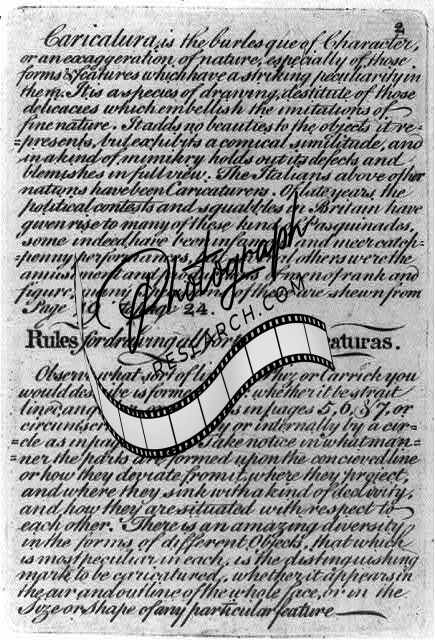 2
Caricatura, is the burlesque of Character,
or an exaggeration of nature, especially of those
forms & features which have a striking peculiarity in
them. It is a species of drawing, destitute of those
delicacies which embellish the imitations of
fine nature. It adds no beauties to the objects it re=
=presents, but exhibits a comical similitude, and
in a kind of mimikry holds out its defects and
blemishes in full view. The Italians above other
nations have been Caricaturers. Of late years the
political contests and squabbles in Britain have
given rise to many of these kind Pasquinades,
some indeed have been and meer catch=
=penny performances, others were the
amuse and men of rank and
figure, shewn from
Page 24.
Photograph
RESEARCH.COM
Rules for drawing aturas.
Observe what sort of or Carrick you
would describe is form whether it be strait
lined, ang in pages 5, 6, & 7, or
circumscr or internally by a cir=
=cle as in pa Take notice in what man=
=ner the parts are formed upon the concieved line
or how they deviate from it, where they project,
and where they sink with a kind of declivity,
and how they are situated with respect to
each other. There is an amazing diversity
in the forms of different Objects, that which
is most peculiar in each, is the distinguishing
mark to be caricatured, whether it appears in
the air and outline of the whole face, or in the
Size or shape of any particular feature